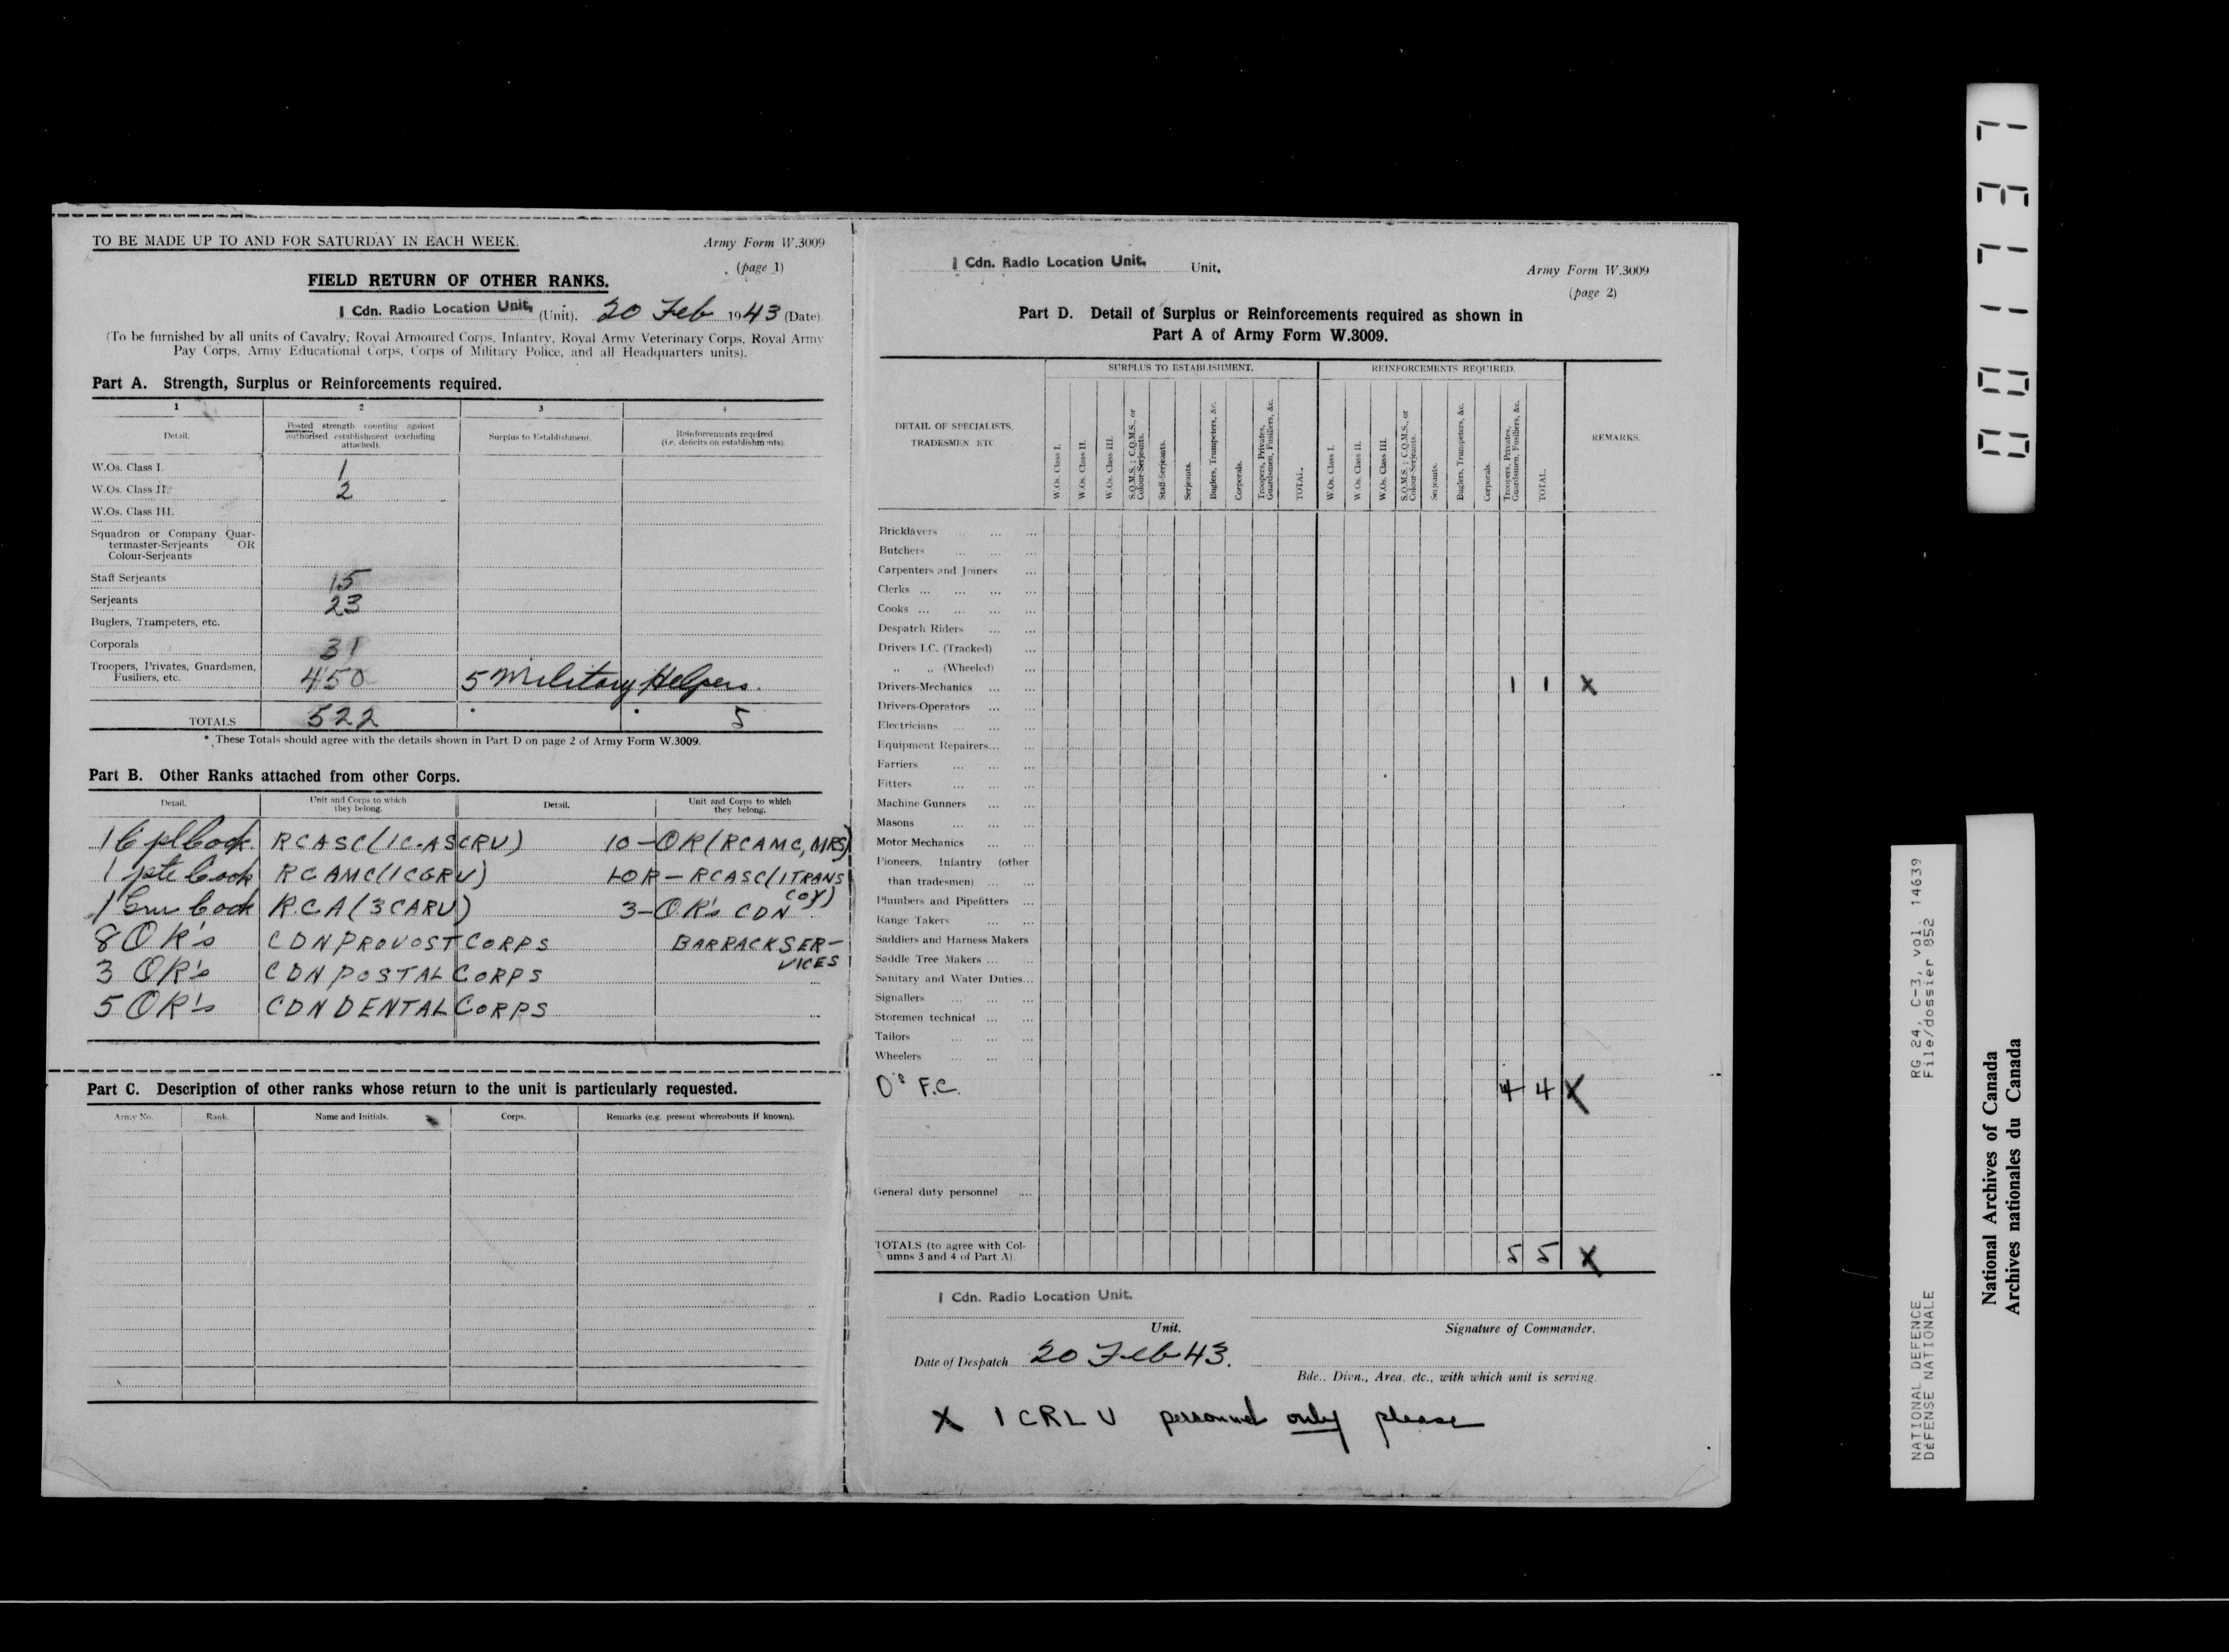 TO BE MADE UP TO AND FOR SATURDAY IN EACH WEEK.
Army Form W.3009
(page 1)
FIELD RETURN OF OTHER RANKS.
1 Cdn. Radio Location Unit, (Unit). 20 Feb 1943 (Date).
(To be furnished by all units of Cavalry; Royal Armoured Corps, Infantry, Royal Army Veterinary Corps, Royal Army
Pay Corps, Army Educational Corps, Corps of Military Police, and all Headquarters units).
Part A. Strength, Surplus or Reinforcements required.
1 2 3 4
Detail.
Posted strength counting against
authorised establishment (excluding
attached).
Surplus to Establishment.
Reinforcements required
(i.e. deficits on establishments).
W.Os. Class I. 1
W.Os. Class II. 2
W.Os. Class III.
Squadron or Company Quar-
termaster-Serjeants OR
Colour-Serjeants
Staff Serjeants 15
Serjeants 23
Buglers, Trumpeters, etc.
Corporals 31
Troopers, Privates, Guardsmen,
Fusiliers, etc. 450 5 Military Helpers.
TOTALS 522 * * 5
* These Totals should agree with the details shown in Part D on page 2 of Army Form W.3009.
Part B. Other Ranks attached from other Corps.
Detail.
Unit and Corps to which
they belong.
Detail.
Unit and Corps to which
they belong.
1 Cpl Cook. RCASC (1C.ASCRU) 10 - OR (RCAMC, MRS)
1 pte Cook RCAMC (1CGRU) 1 OR - RCASC (1 TRANS
COY)
1 Gnr Cook R.C.A (3 CARU) 3 - OR's CDN
8 OR's CDN PROVOST CORPS BARRACK SER-
VICES
3 OR's CDN POSTAL CORPS
5 OR's CDN DENTAL CORPS
Part C. Description of other ranks whose return to the unit is particularly requested.
Army No. Rank. Name and Initials. Corps. Remarks (e.g. present whereabouts if known).
1 Cdn. Radio Location Unit. Unit.
Army Form W.3009
(page 2)
Part D. Detail of Surplus or Reinforcements required as shown in
Part A of Army Form W.3009.
DETAIL OF SPECIALISTS,
TRADESMEN ETC.
SURPLUS TO ESTABLISHMENT.
W.Os. Class I.
W.Os. Class II.
W.Os. Class III.
S.Q.M.S.; C.Q.M.S., or
Colour-Serjeants.
Staff-Serjeants.
Serjeants.
Buglers, Trumpeters, &c.
Corporals.
Troopers, Privates,
Guardsmen, Fusiliers, &c.
TOTAL.
REINFORCEMENTS REQUIRED.
W.Os. Class I.
W.Os. Class II.
W.Os. Class III.
S.Q.M.S.; C.Q.M.S., or
Colour-Serjeants.
Serjeants.
Buglers, Trumpeters, &c.
Corporals.
Troopers, Privates,
Guardsmen, Fusiliers, &c.
TOTAL.
REMARKS.
Bricklayers
Butchers
Carpenters and Joiners
Clerks
Cooks
Despatch Riders
Drivers I.C. (Tracked)
,, ,, (Wheeled)
Drivers-Mechanics 1 1 X
Drivers-Operators
Electricians
Equipment Repairers
Farriers
Fitters
Machine Gunners
Masons
Motor Mechanics
Pioneers, Infantry (other
than tradesmen)
Plumbers and Pipefitters
Range Takers
Saddlers and Harness Makers
Saddle Tree Makers
Sanitary and Water Duties
Signallers
Storemen technical
Tailors
Wheelers
O's F.C. 4 4 X
General duty personnel
TOTALS (to agree with Col-
umns 3 and 4 of Part A). 5 5 X
1 Cdn. Radio Location Unit.
Unit.
Signature of Commander.
Date of Despatch 20 Feb 43.
Bde., Divn., Area, etc., with which unit is serving.
X 1 CRLU personnel only please
001737
RG 24, C-3, vol. 14639
File/dossier 852
NATIONAL DEFENCE
DÉFENSE NATIONALE
National Archives of Canada
Archives nationales du Canada